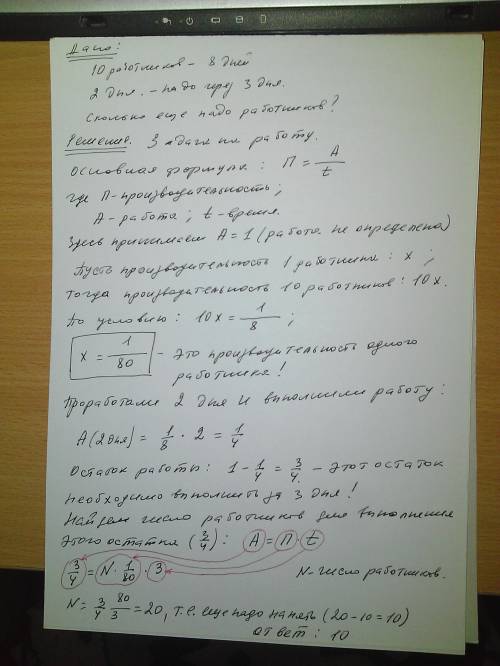 Дано:
10 работников - 8 дней
2 дня. - надо через 3 дня.
Сколько еще надо работников?
Решение. Задача на работу.
Основная формула: П = A/t
где П-производительность;
А-работа; t-время.
Здесь принимаем А=1 (работа не определена)
Пусть производительность 1 работника: x;
тогда производительность 10 работников: 10x.
По условию: 10x = 1/8;
x = 1/80 - это производительность одного
работника!
Проработали 2 дня и выполнили работу:
A(2дня) = 1/8 · 2 = 1/4
Остаток работы: 1 - 1/4 = 3/4 - этот остаток
необходимо выполнить за 3 дня!
Найдем число работников для выполнения
этого остатка (3/4): A = П · t
3/4 = N · 1/80 · 3 N-число работников.
N = 3/4 · 80/3 = 20, т.е. еще надо нанять (20-10=10)
Ответ: 10